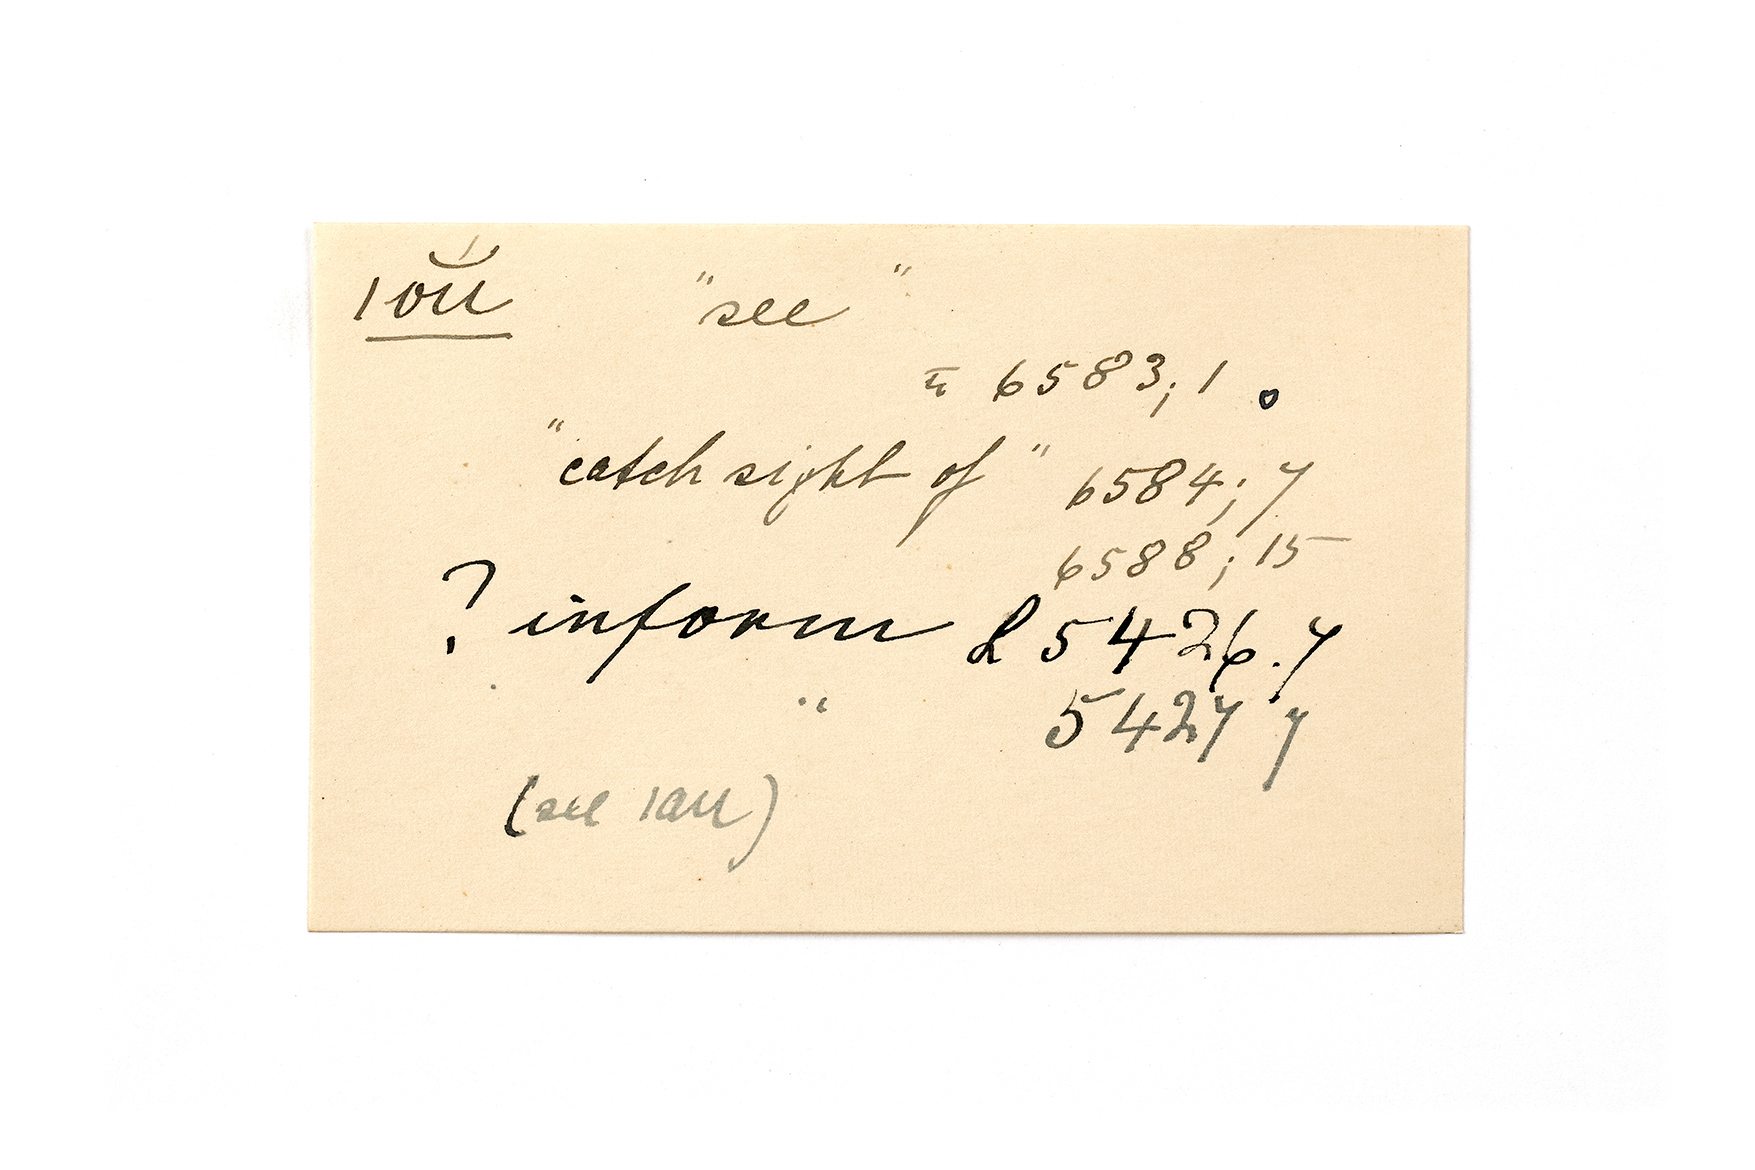 ıoŭ "see"
= 6583; 1 .
"catch sight of" 6584; 7
6588; 15
? inform L 5426.7
" 5427 7
(see ıau)